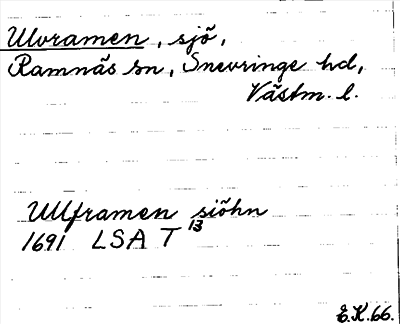 Ulvramen, sjö,
Ramnäs sn, Snevringe hd,
Västm. l.
Ullframen siöhn
1691 LSA T 13
E.K.66.